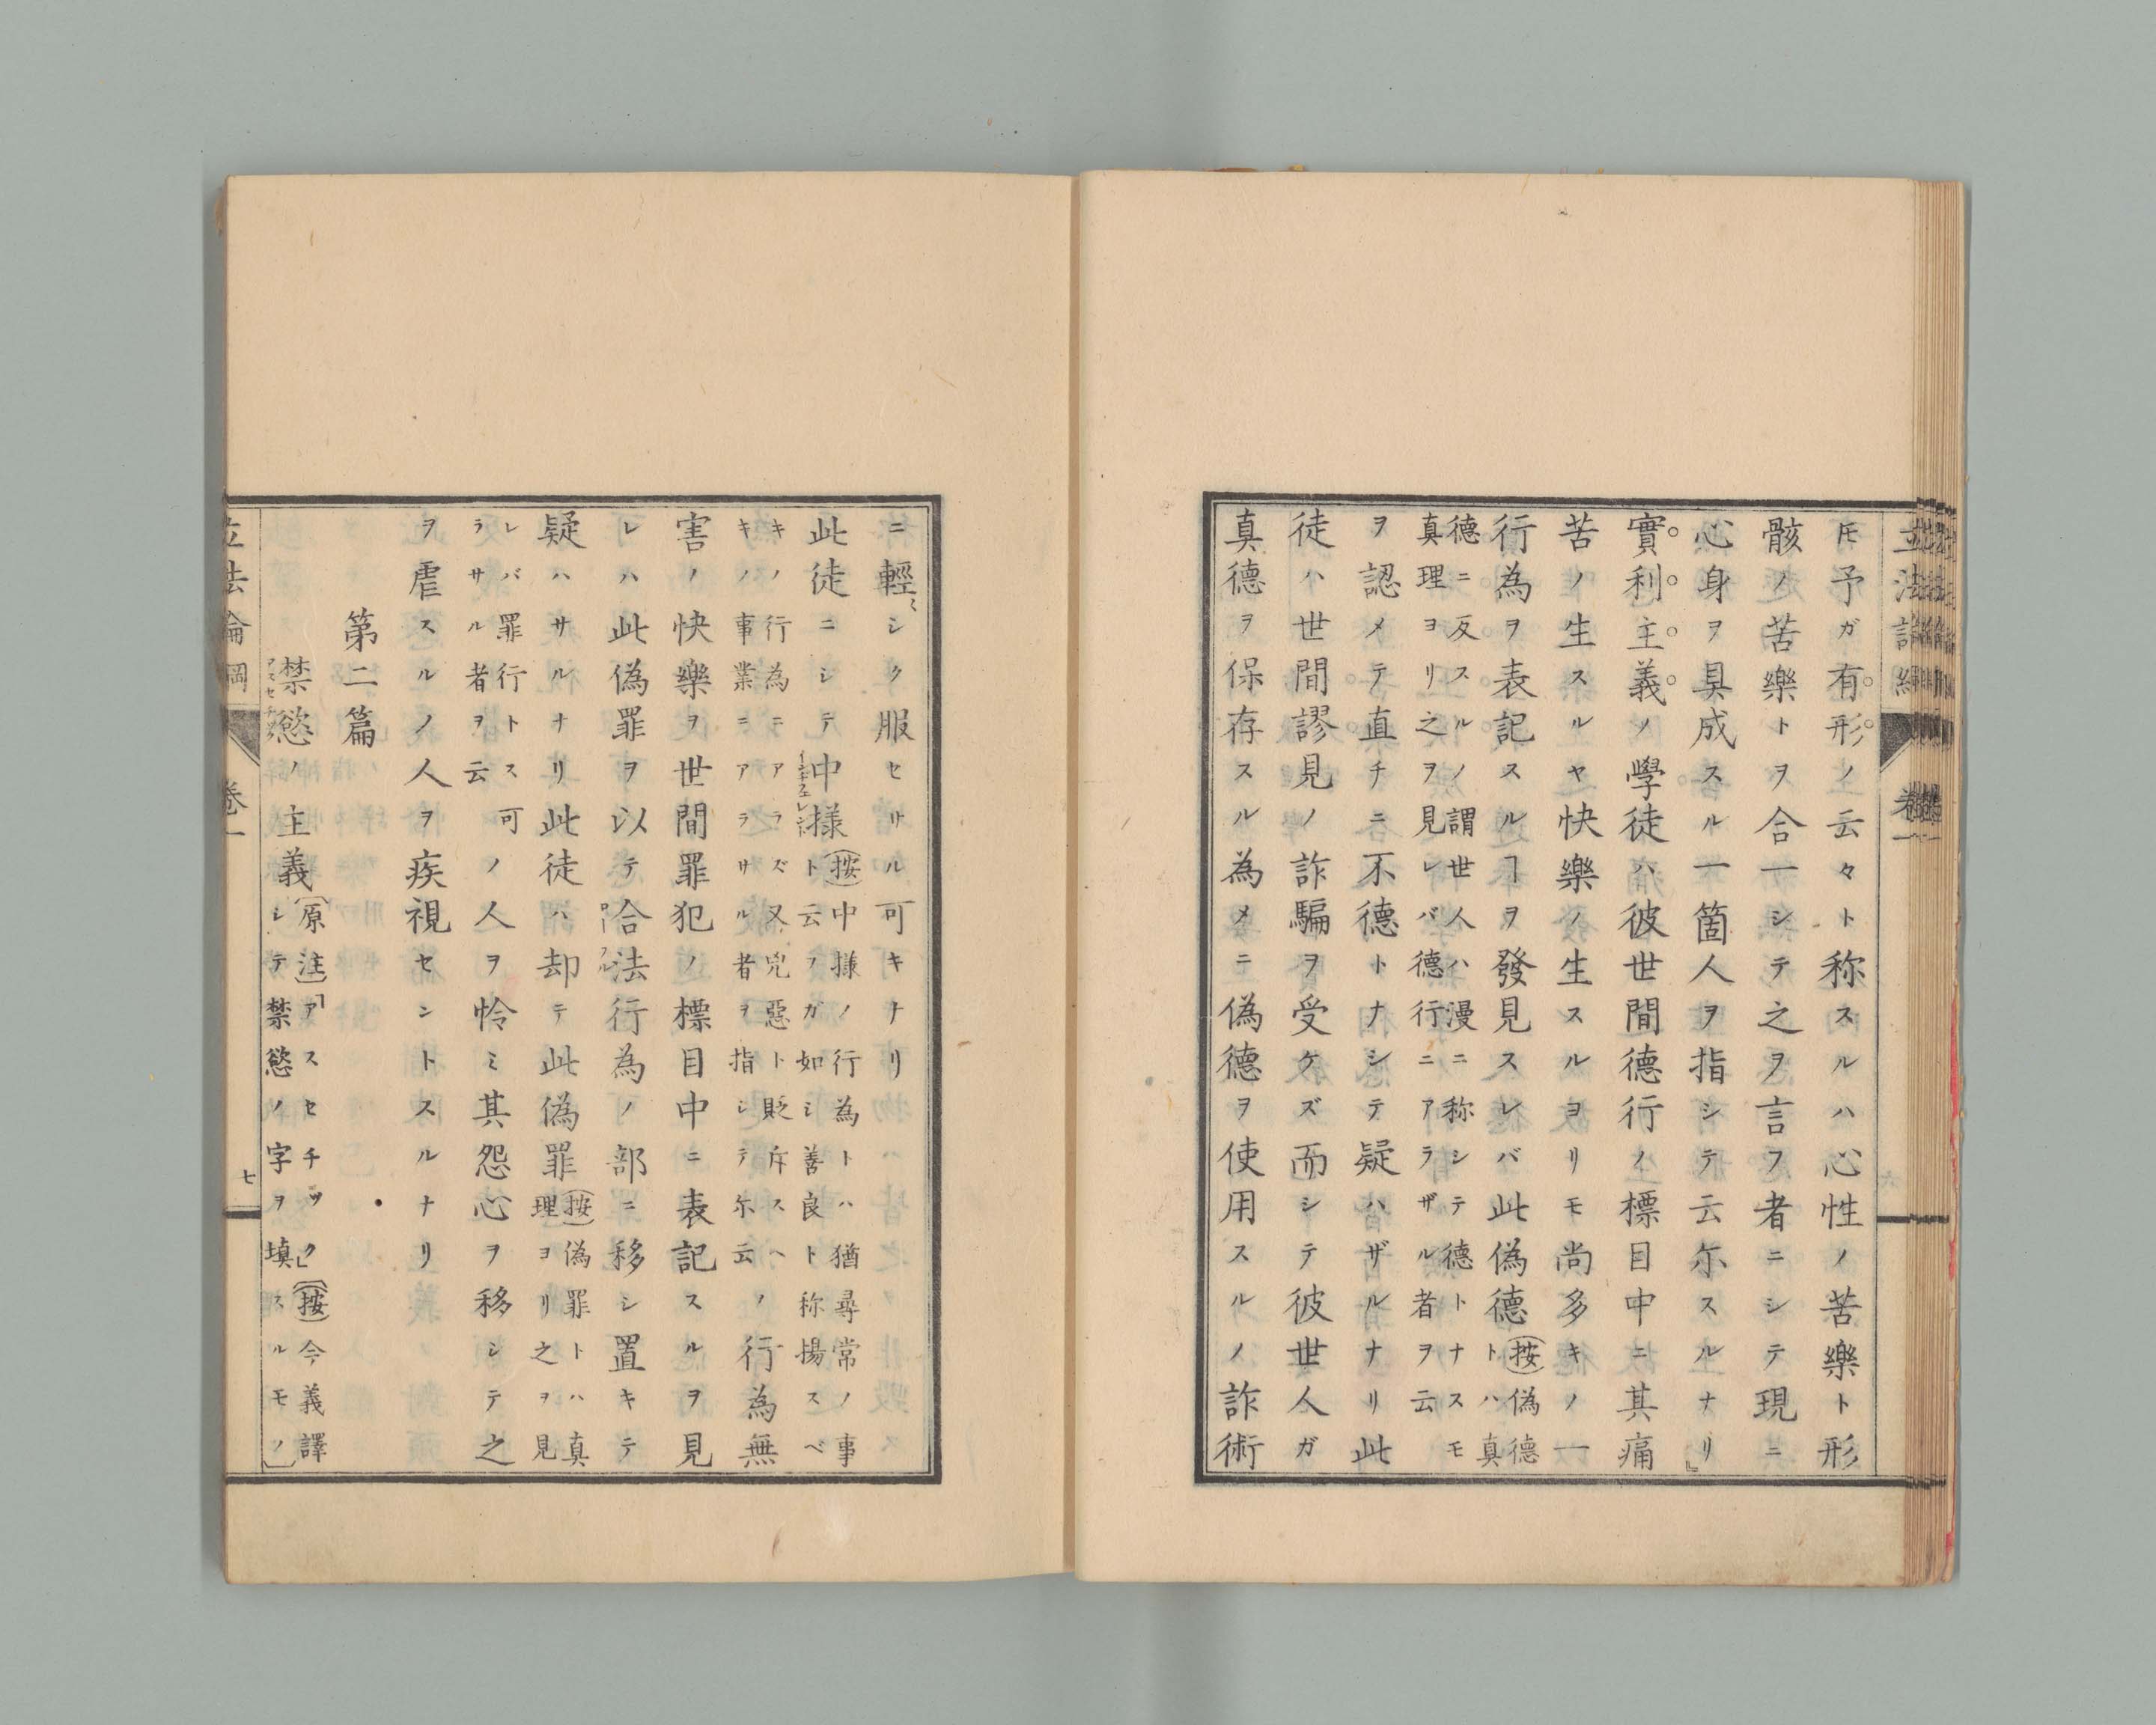 立法論綱 卷一
𪜈予ガ有形ノ云々ト称スルハ心性ノ苦樂ト形
骸ノ苦樂トヲ合一シテ之ヲ言フ者ニシテ現ニ
心身ヲ具成スル一箇人ヲ指シテ云尓スルナリ」
實利主義ノ學徒ハ彼世間德行ノ標目中ニ其痛
苦ノ生スルヤ快樂ノ生スルヨリモ尚多キノ一
行為ヲ表記スルヿヲ發見スレバ此偽德(按)偽德
トハ真
德ニ反スルノ謂世人ハ漫ニ称シテ德トナスモ
真理ヨリ之ヲ見レバ德行ニアラザル者ヲ云
ヲ認メテ直チニ不德トナシテ疑ハザルナリ此
徒ハ世間謬見ノ詐騙ヲ受ケズ而シテ彼世人ガ
真德ヲ保存スル為メニ偽德ヲ使用スルノ詐術
ニ輕〻シク服セサル可キナリ
此徒ニシテ中様(按)中様ノ行為トハ猶尋常ノ事
ト云フガ如シ善良ト称揚スベ
キノ行為ニアラズ又兇惡ト貶斥スヘ
キノ事業ニアラサル者ヲ指シテ尓云ノ行為無
害ノ快樂ヲ世間罪犯ノ標目中ニ表記スルヲ見
レハ此偽罪ヲ以テ合法行為ノ部ニ移シ置キテ
疑ハサルナリ此徒ハ却テ此偽罪(按)偽罪トハ真
理ヨリ之ヲ見
レバ罪行トス可
ラサル者ヲ云ノ人ヲ怜ミ其怨心ヲ移シテ之
ヲ虐スルノ人ヲ疾視セントスルナリ
第二篇
禁慾ノ主義(原注)「アスセチック」(按)今義譯
シテ禁慾ノ字ヲ填スルモノ」
立法論綱 卷一 七